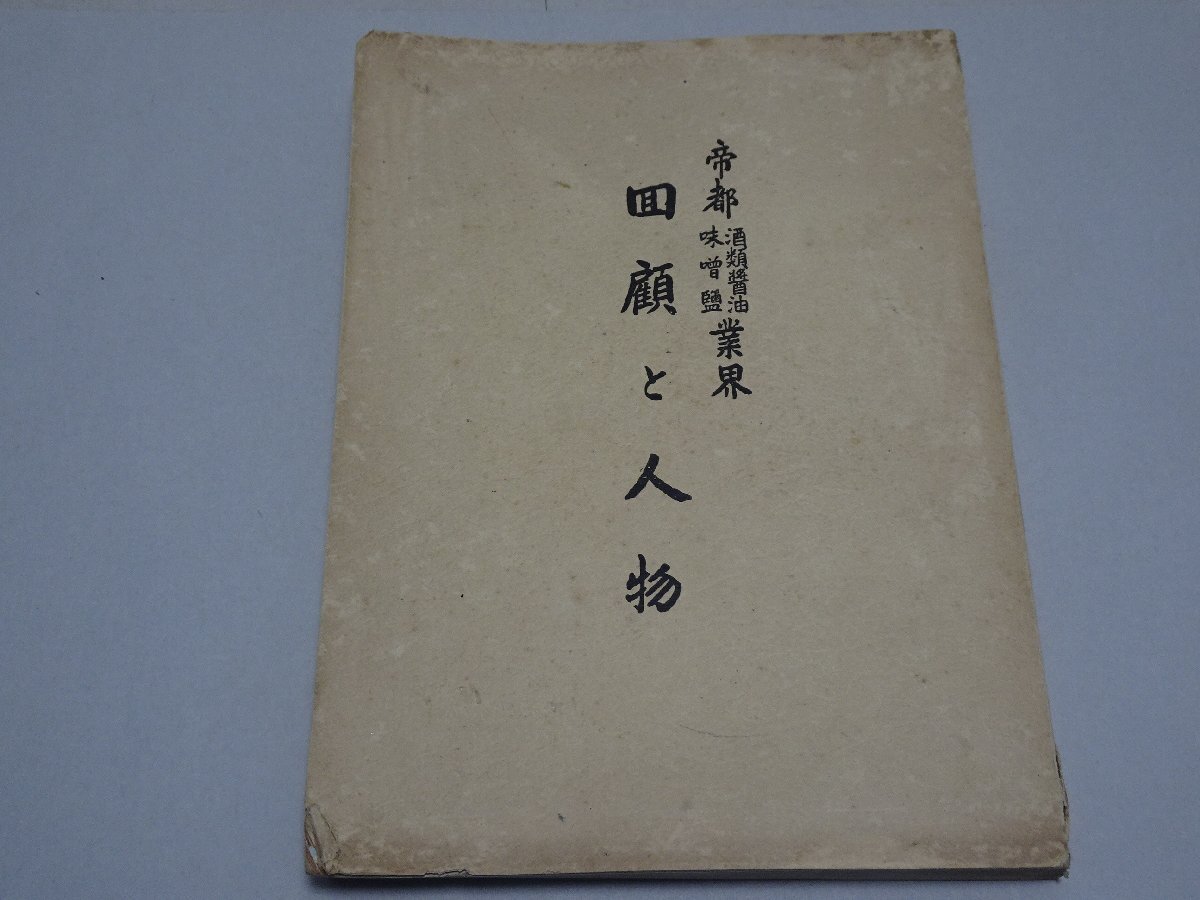 帝都酒類醬油味噌鹽業界
回顧と人物